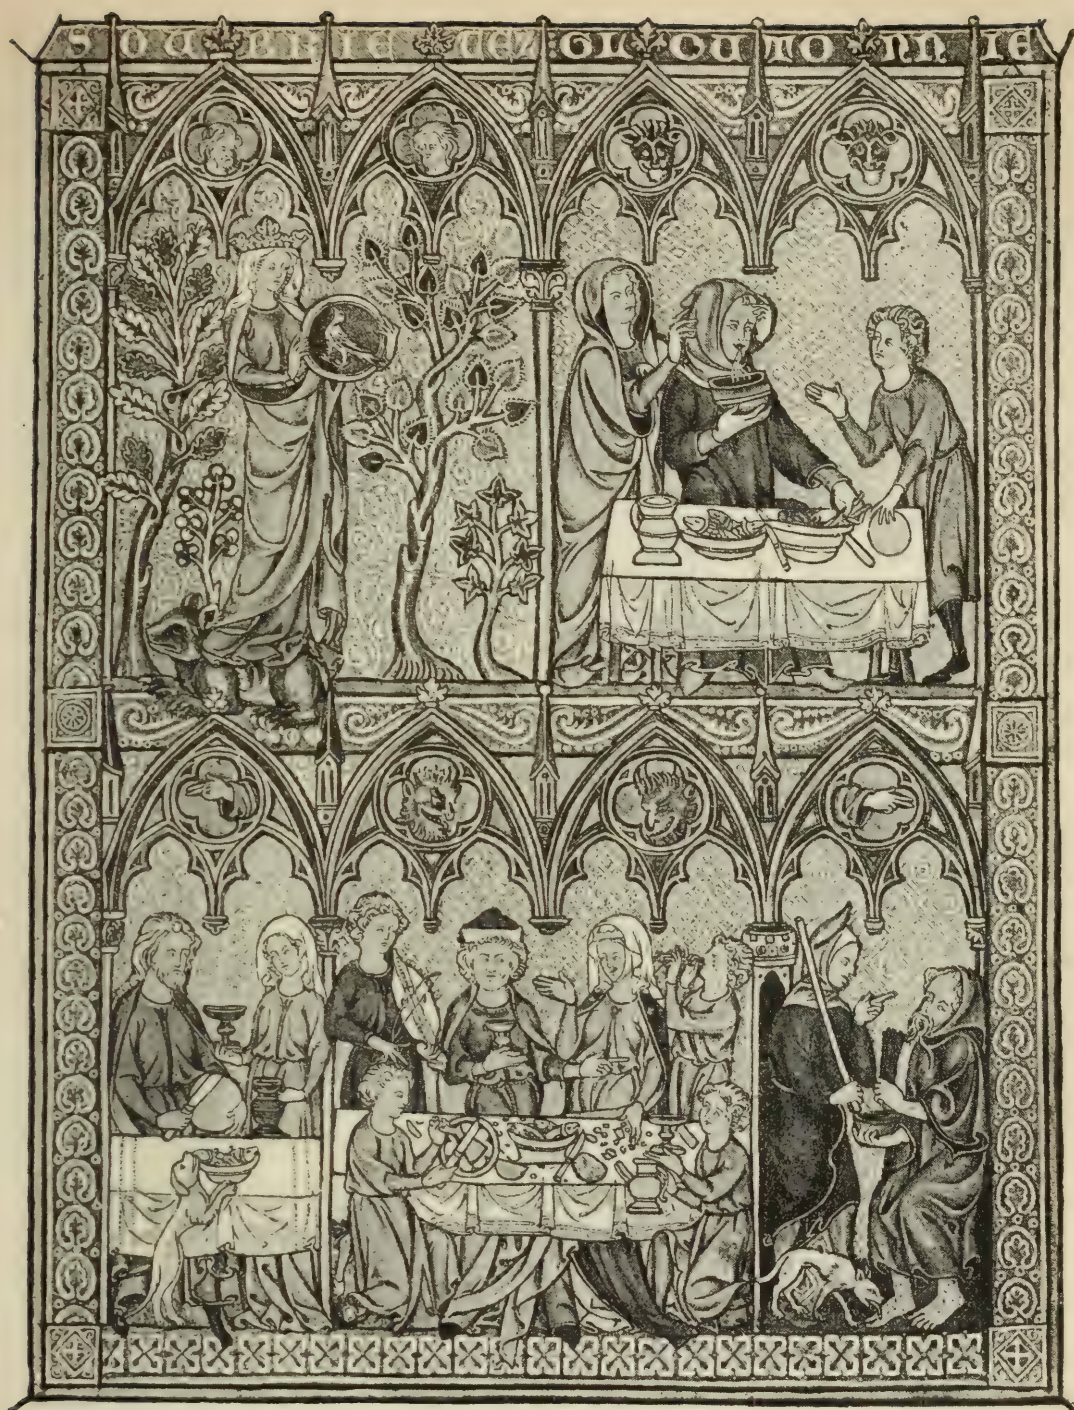 SOUBRIETEZ : GLOUTONNIE